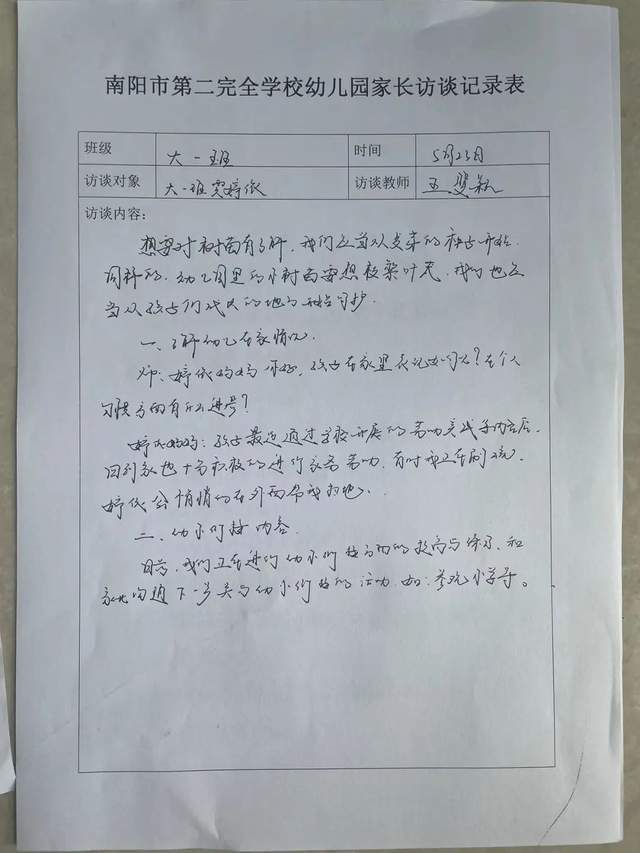 南阳市第二完全学校幼儿园家长访谈记录表
班级 大一班 时间 5月23日
访谈对象 大一班贾婷依 访谈教师 王
访谈内容：
想要对树苗有了解，我们应当从发芽的种子开始
同样的，幼儿园里的小树苗要想枝繁叶茂，我们也应
当从孩子们成长的地方开始守护.
一、了解幼儿在家情况.
师：婷依妈妈你好，孩子在家里表现如何？在个人
习惯方面有什么进步？
婷依妈妈：孩子最近通过学校开展的劳动实践活动后，
回到家也十分积极的进行家务劳动，有时我正在刷碗，
婷依会悄悄的在外面帮我扫地.
二、幼小衔接内容.
目前，我们正在进行幼小衔接方面的提高与练习，和
家长沟通下一步关与幼小衔接的活动，如：参观小学等。